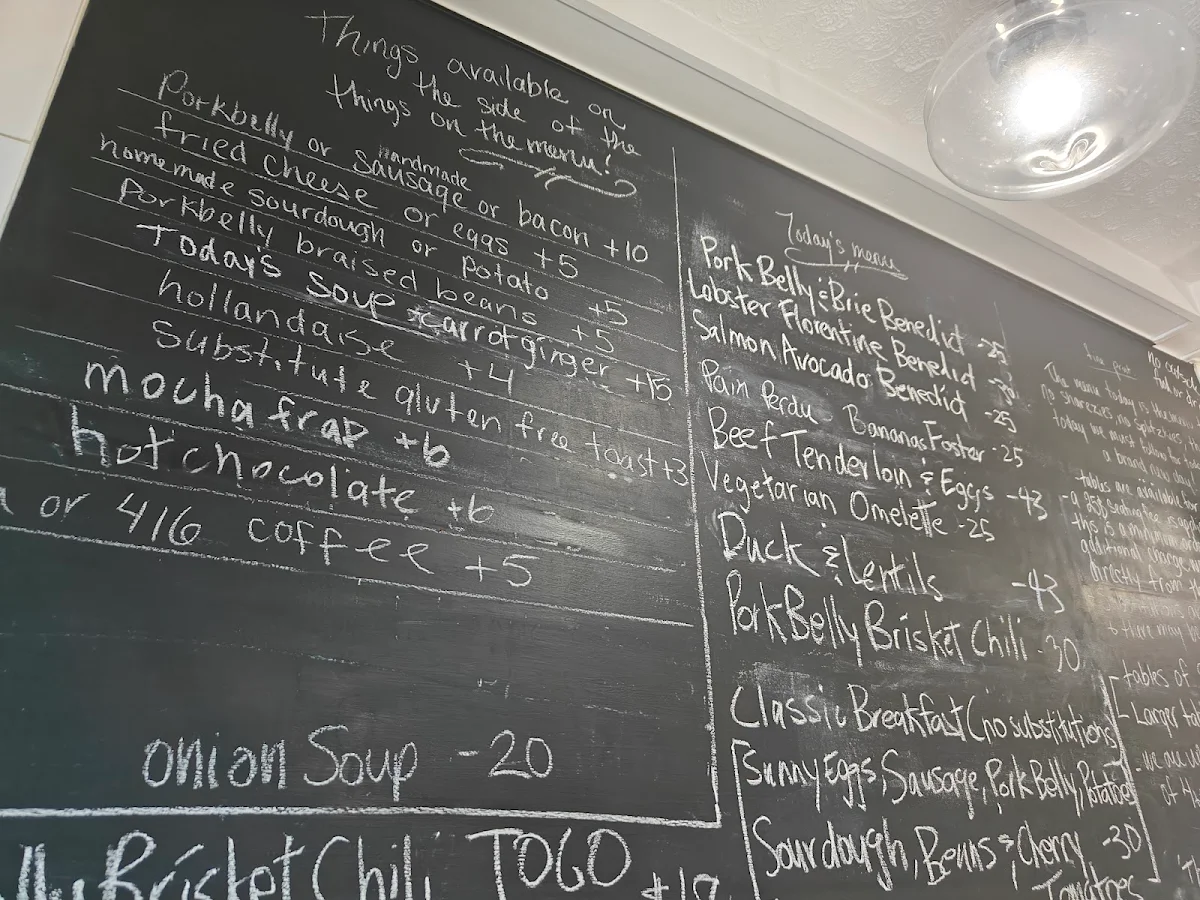 Things available on
the side of the
things on the menu!
Porkbelly or handmade sausage or bacon +10
fried cheese or eggs +5
homemade sourdough or potato +5
Porkbelly braised beans +5
Today's Soup carrot ginger +15
hollandaise +4
Substitute gluten free toast +3
mocha frap +6
hot chocolate +6
or 416 coffee +5
onion Soup -20
Brisket Chili TOGO
Today's menu
Pork Belly & Brie Benedict -25
Lobster Florentine Benedict -30
Salmon Avocado Benedict -25
Pain Perdu Bananas Foster -25
Beef Tenderloin & Eggs -43
Vegetarian Omelette -25
Duck & Lentils -43
Pork Belly Brisket Chili -30
Classic Breakfast (no substitutions)
Sunny Eggs, Sausage, Pork Belly, Potatoes
Sourdough, Beans & Cherry -30
Tomatoes
fine print
The menu today is the
no sharezies, no splitzies
today we must follow the
a brand new day
tables are available
this is a
additional charge
directly from
there may
- tables of
- Larger
of